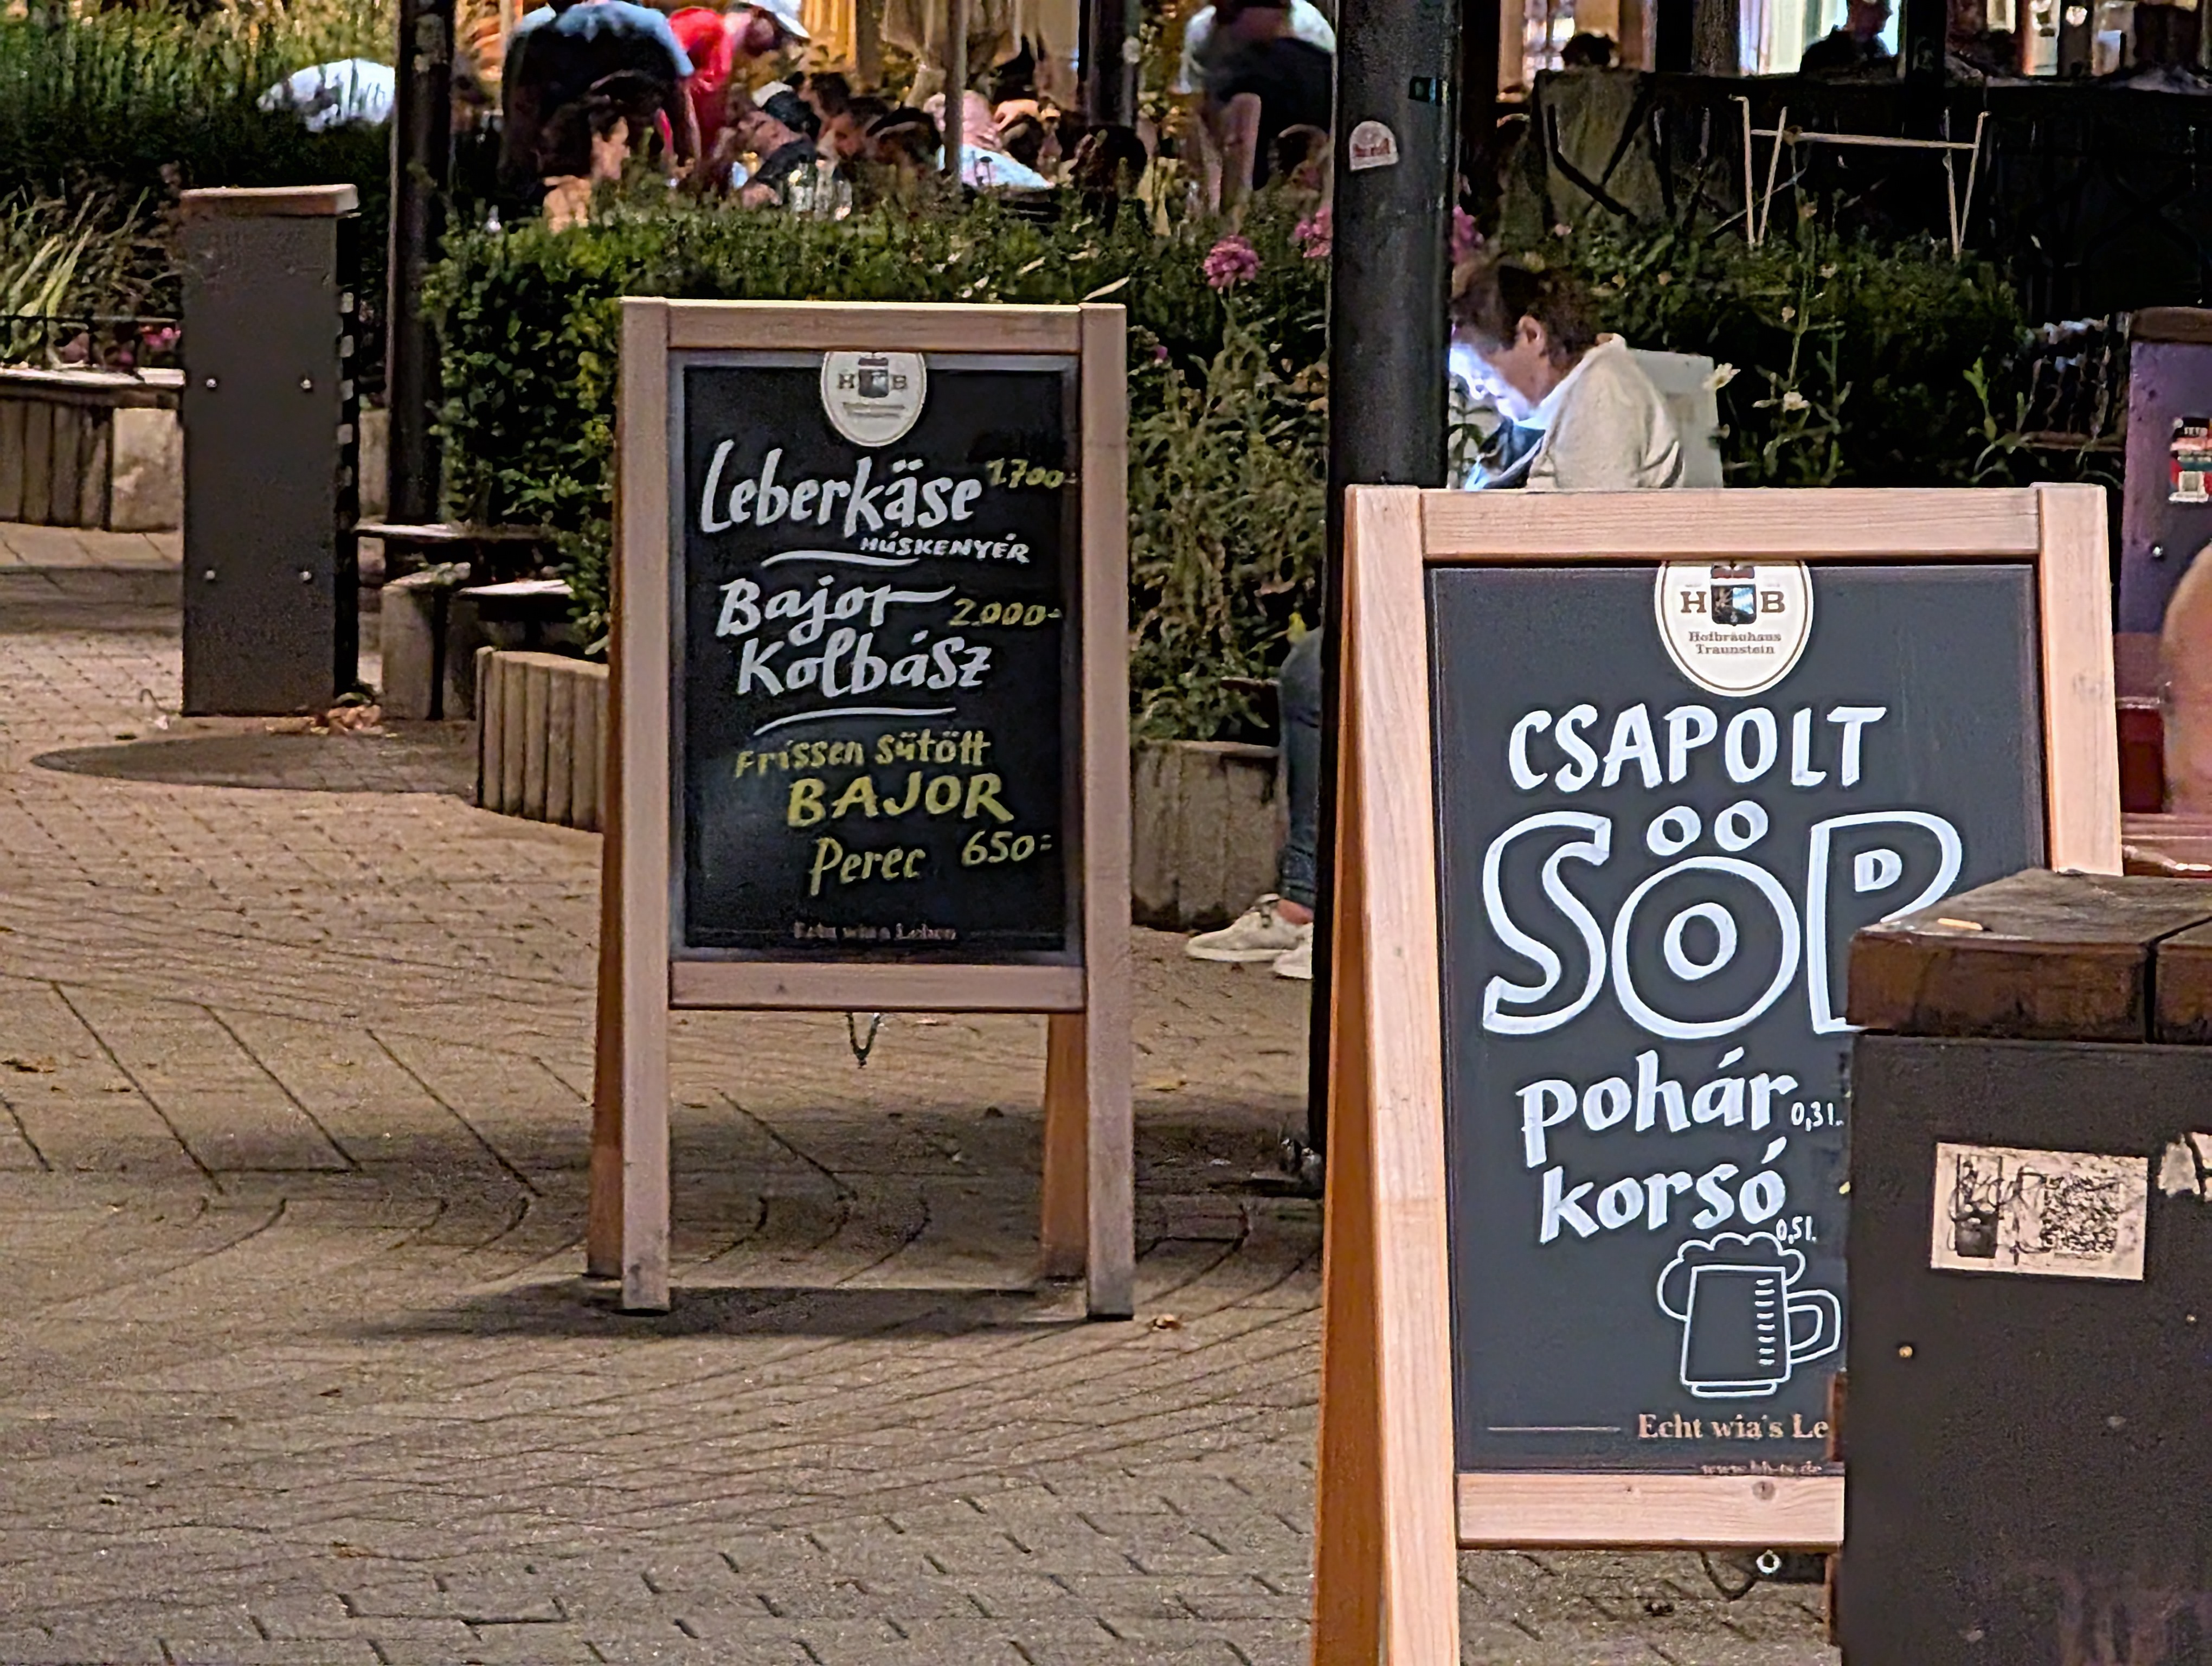 H B
Leberkäse 1.700-
HÚSKENYÉR
Bajor 2.000-
Kolbász
Frissen Sütött
BAJOR
Perec 650-
Echt wia's Leben
H B
Hofbräuhaus
Traunstein
CSAPOLT
SÖR
pohár 0,3 l.
korsó
0,5 l.
Echt wia's Le